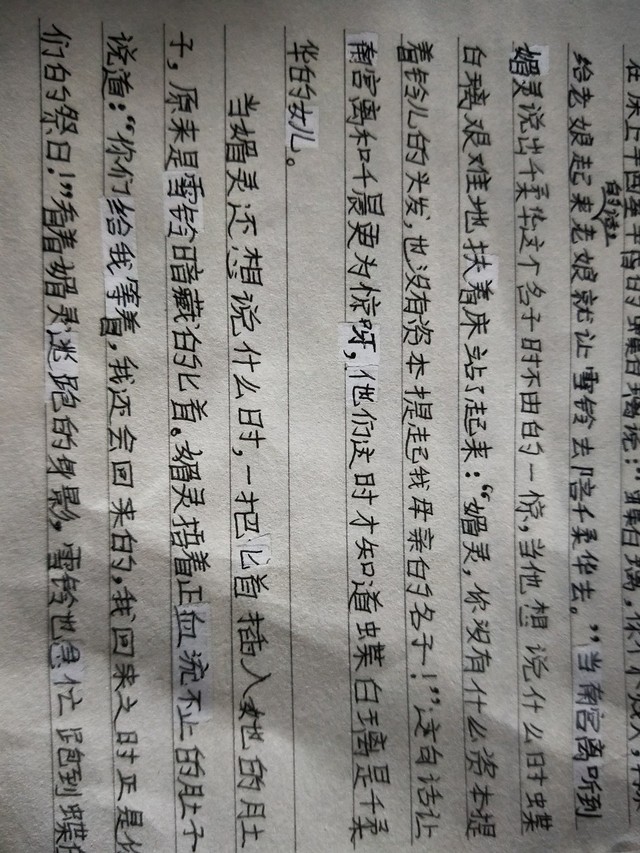 在床上
给老娘起来老娘就让雪铃去陪千柔华去。”当南宫离听到
的话
媚灵说出千柔华这个名子时不由的一惊，当他想说什么时蝶
白璃艰难地扶着床站了起来：“媚灵，你没有什么资本提
着铃儿的头发，也没有资本提起我母亲的名子！”这句话让
南宫离和叶晨更为惊呀，他们这时才知道蝶白璃是千柔
华的女儿。
当媚灵还想说什么时，一把匕首插入她的肚
子，原来是雪铃暗藏的匕首。媚灵捂着正血流不止的肚子
说道：“你们给我等着，我还会回来的，我回来之时正是你
们的祭日！”看着媚灵逃跑的身影，雪铃也急忙跑到蝶